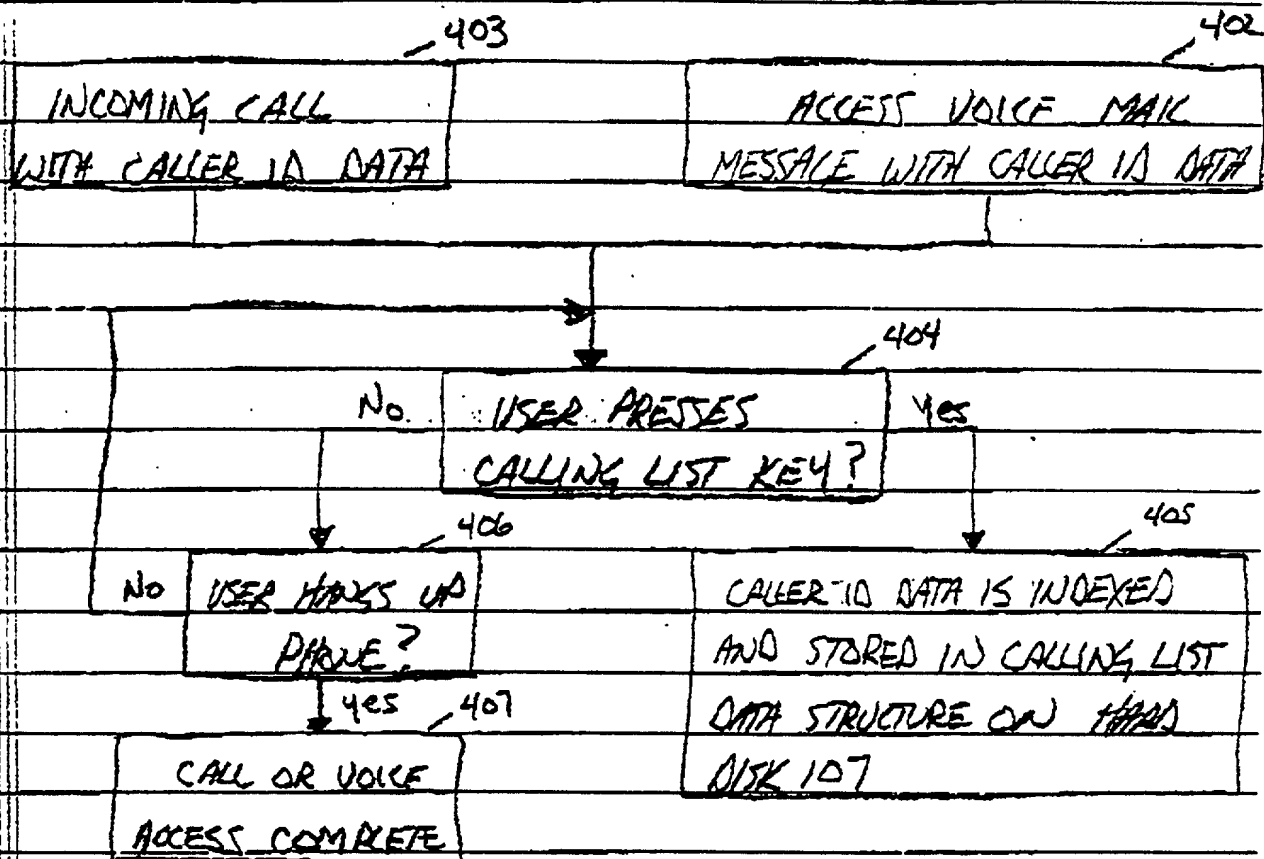 403
INCOMING CALL
WITH CALLER ID DATA
402
ACCESS VOICE MAIL
MESSAGE WITH CALLER ID DATA
404
No
USER PRESSES
CALLING LIST KEY?
Yes
406
No
USER HANGS UP
PHONE?
yes
405
CALLER-ID DATA IS INDEXED
AND STORED IN CALLING LIST
DATA STRUCTURE ON HARD
DISK 107
407
CALL OR VOICE
ACCESS COMPLETE